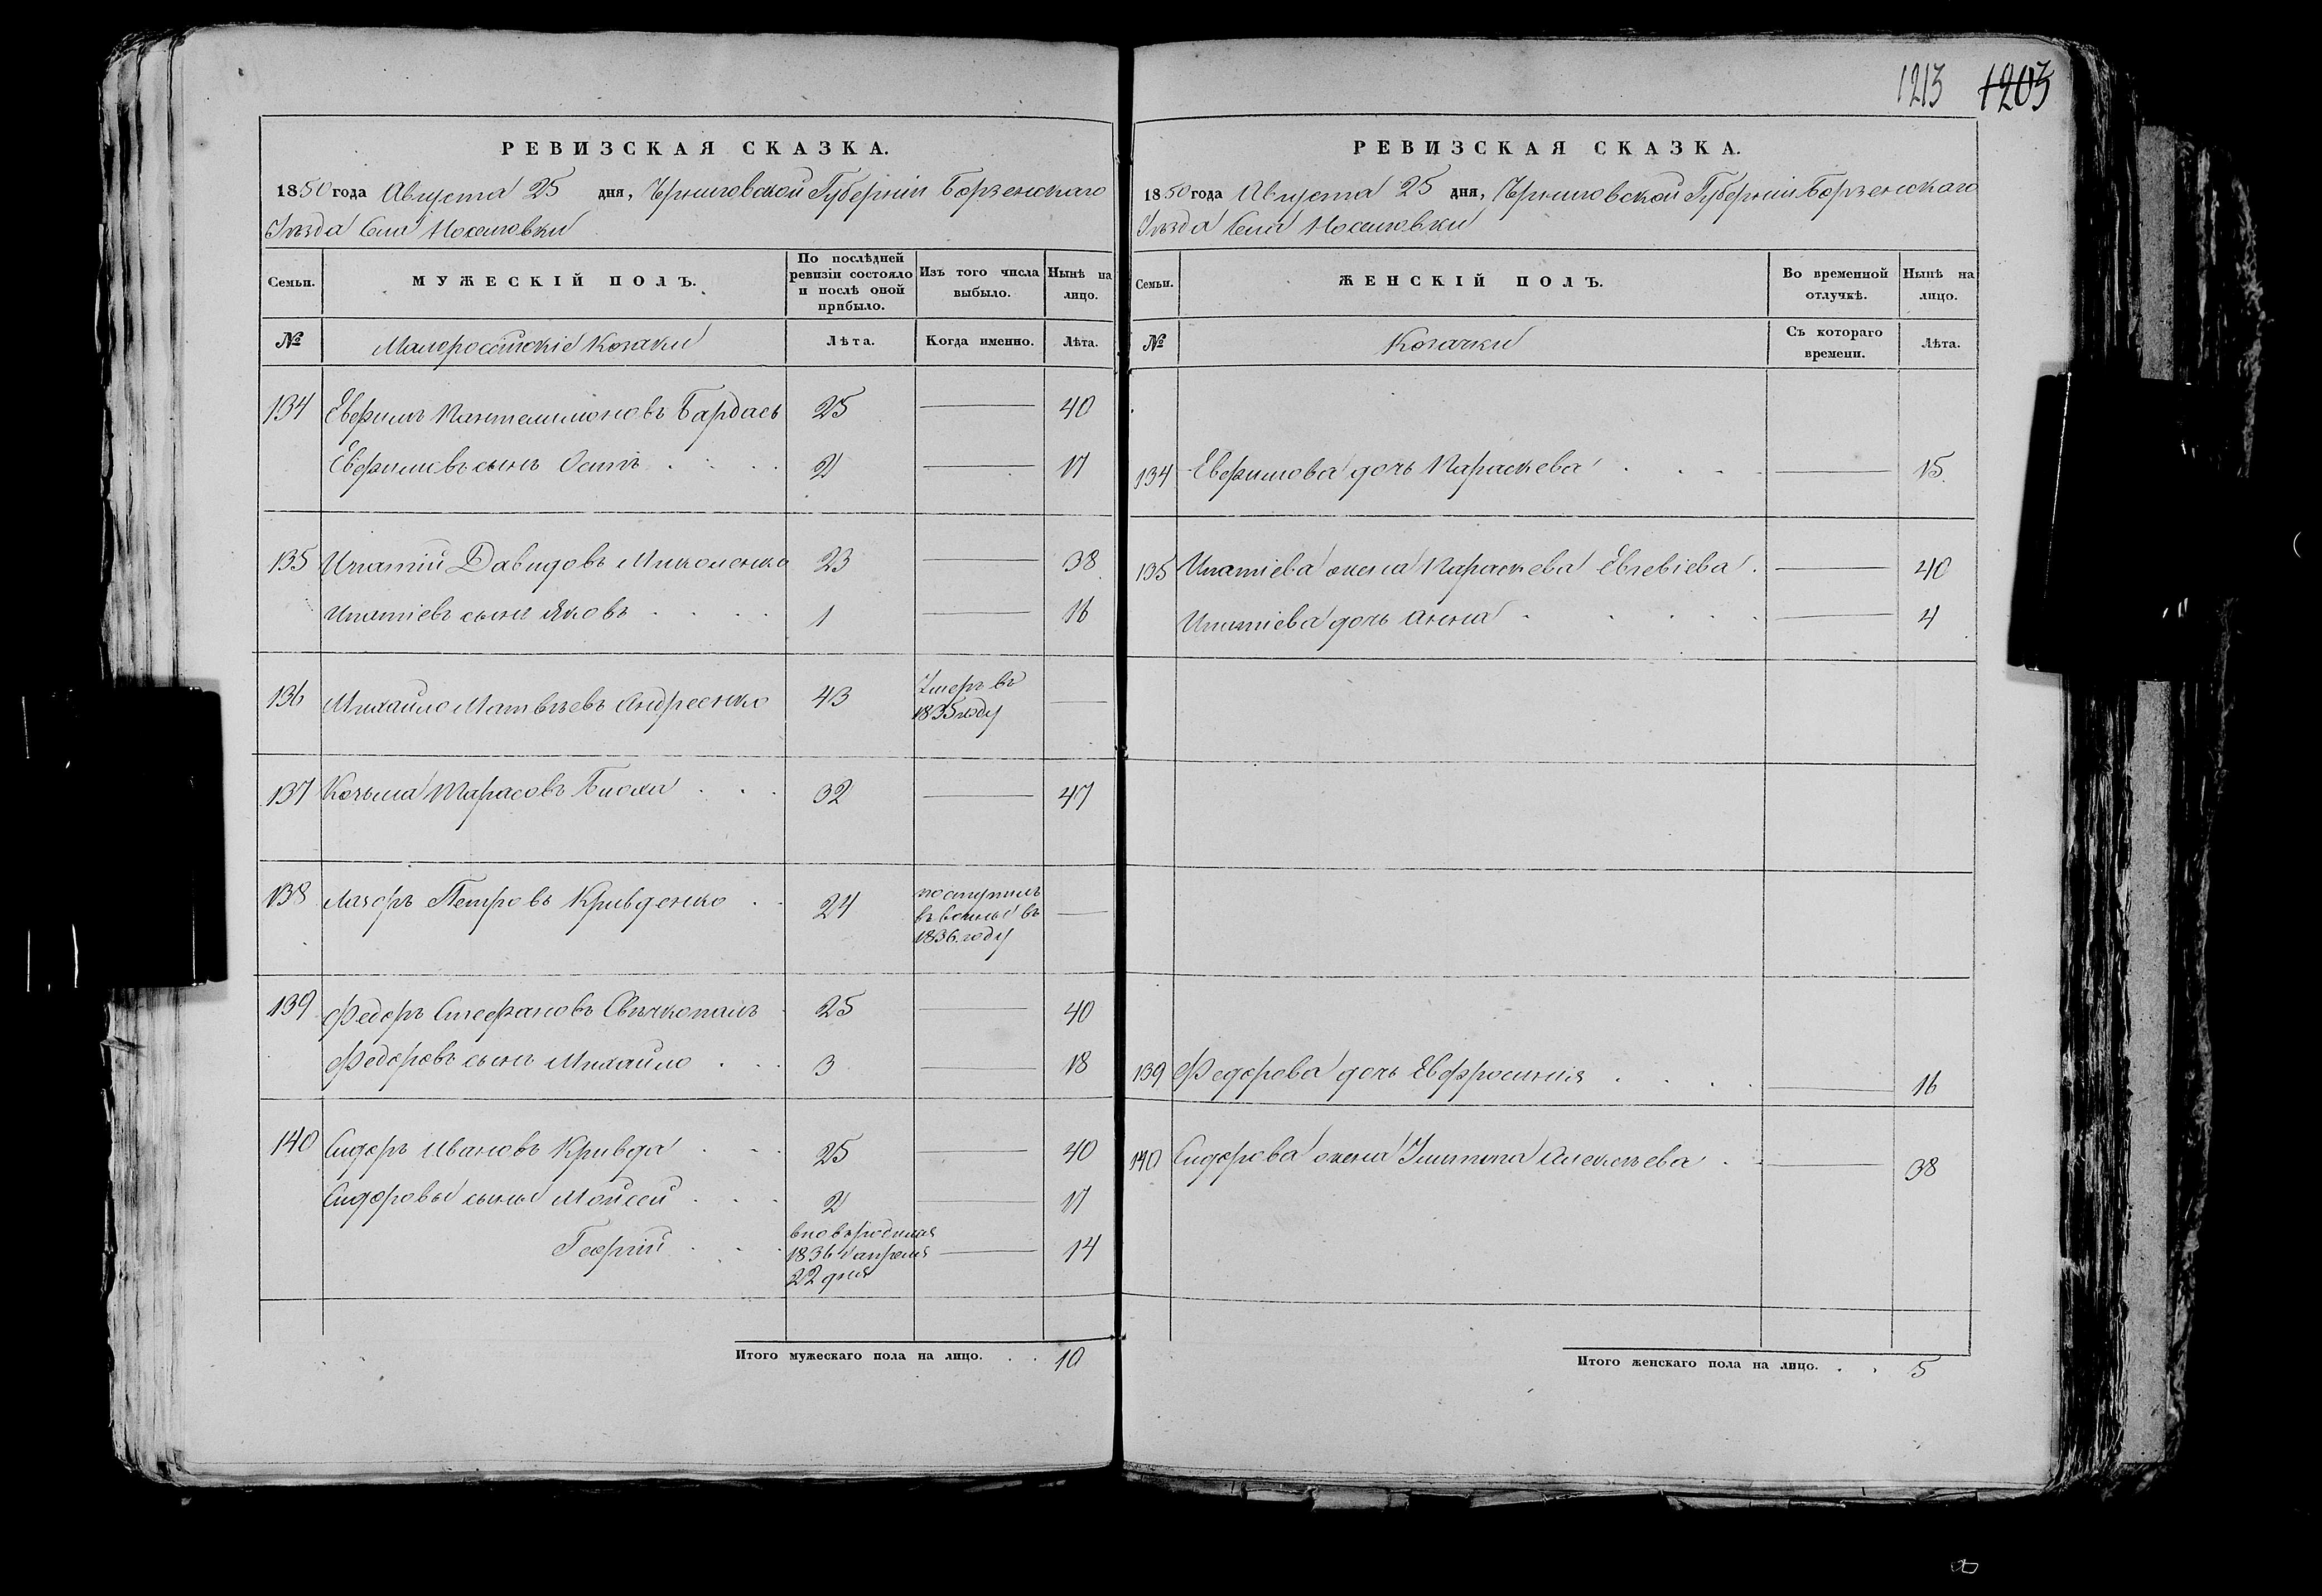 1213 1203
РЕВИЗСКАЯ СКАЗКА.
1850 года Августа 25 дня, Черниговской Губерніи Борзенского
Уѣзда Села
Семьи. МУЖЕСКІЙ ПОЛЪ. По послѣдней ревизіи состояло и послѣ оной прибыло. Изъ того числа выбыло. Нынѣ на лицо.
№ Малороссійскіе Козаки Лѣта. Когда именно. Лѣта.
134 Евфимъ Пантелимоновъ Бардась 25 40
Евфимовъ сынъ Осипъ 2 17
135 Ипатій Давидовъ Миколенко 23 38
Ипатіевъ сынъ Яковъ 1 16
136 Михайло Матвѣевъ Андреенко 43 Умеръ въ
1835 году
137 Козьма Тарасовъ 32 47
138 Лазоръ Петровъ Кривденко 24 поступилъ
въ въ
1836 году
139 Федоръ Стефановъ Свѣчкопалъ 25 40
Федоровъ сынъ Михайло 3 18
140 Сидоръ Ивановъ Кривда 25 40
Сидоровы сыны Мойсей 2 17
Георгій вновьродился
1836 апреля
22 дня 14
Итого мужескаго пола на лицо. 10
РЕВИЗСКАЯ СКАЗКА.
1850 года Августа 25 дня, Черниговской Губерніи Борзенского
Уѣзда Села
Семьи. ЖЕНСКІЙ ПОЛЪ. Во временной отлучкѣ. Нынѣ на лицо.
№ Козачки Съ котораго времени. Лѣта.
134 Евфимова дочь Параскева 15
135 Ипатіева жена Параскева Евсевіева 40
Ипатіева дочь Анна 4
139 Федорова дочь Евфросинія 16
140 Сидорова жена Алексѣева 38
Итого женскаго пола на лицо. 5